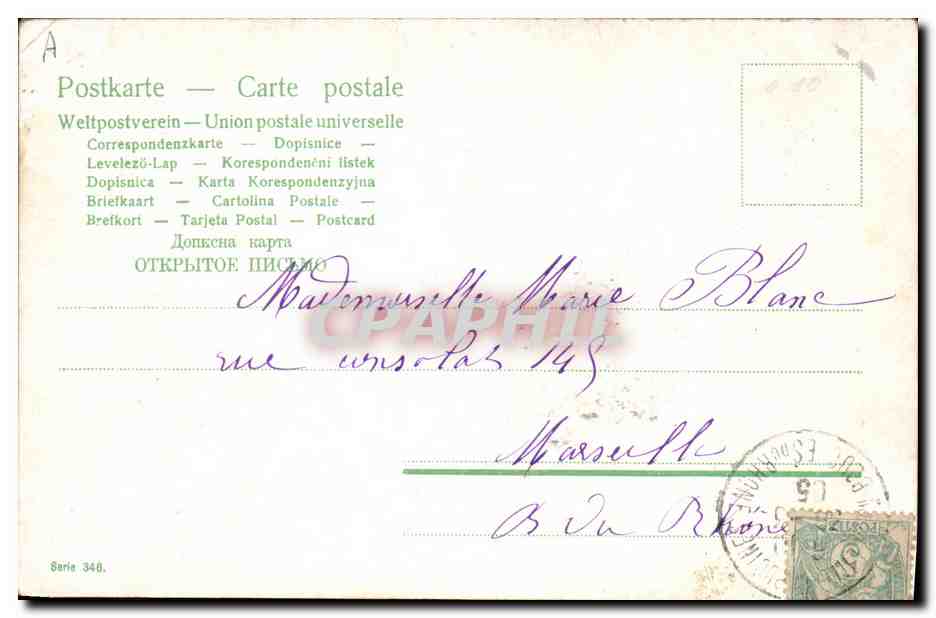 A
Postkarte — Carte postale
Weltpostverein — Union postale universelle
Correspondenzkarte — Dopisnice —
Levelező-Lap — Korespondenční listek
Dopisnica — Karta Korespondenzyjna
Briefkaart — Cartolina Postale —
Brefkort — Tarjeta Postal — Postcard
Допксна карта
ОТКРЫТОЕ ПИСЬМО
Mademoiselle Marie Blanc
CPAPHIL
rue consolat 145
Marseille
B du Rhône
Serie 346.